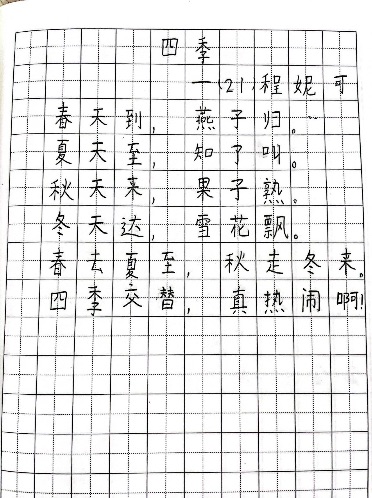 四季
一(21)程妮可
春天到，燕子归。
夏天至，知了叫。
秋天来，果子熟。
冬天达，雪花飘。
春去夏至，秋走冬来。
四季交替，真热闹啊！